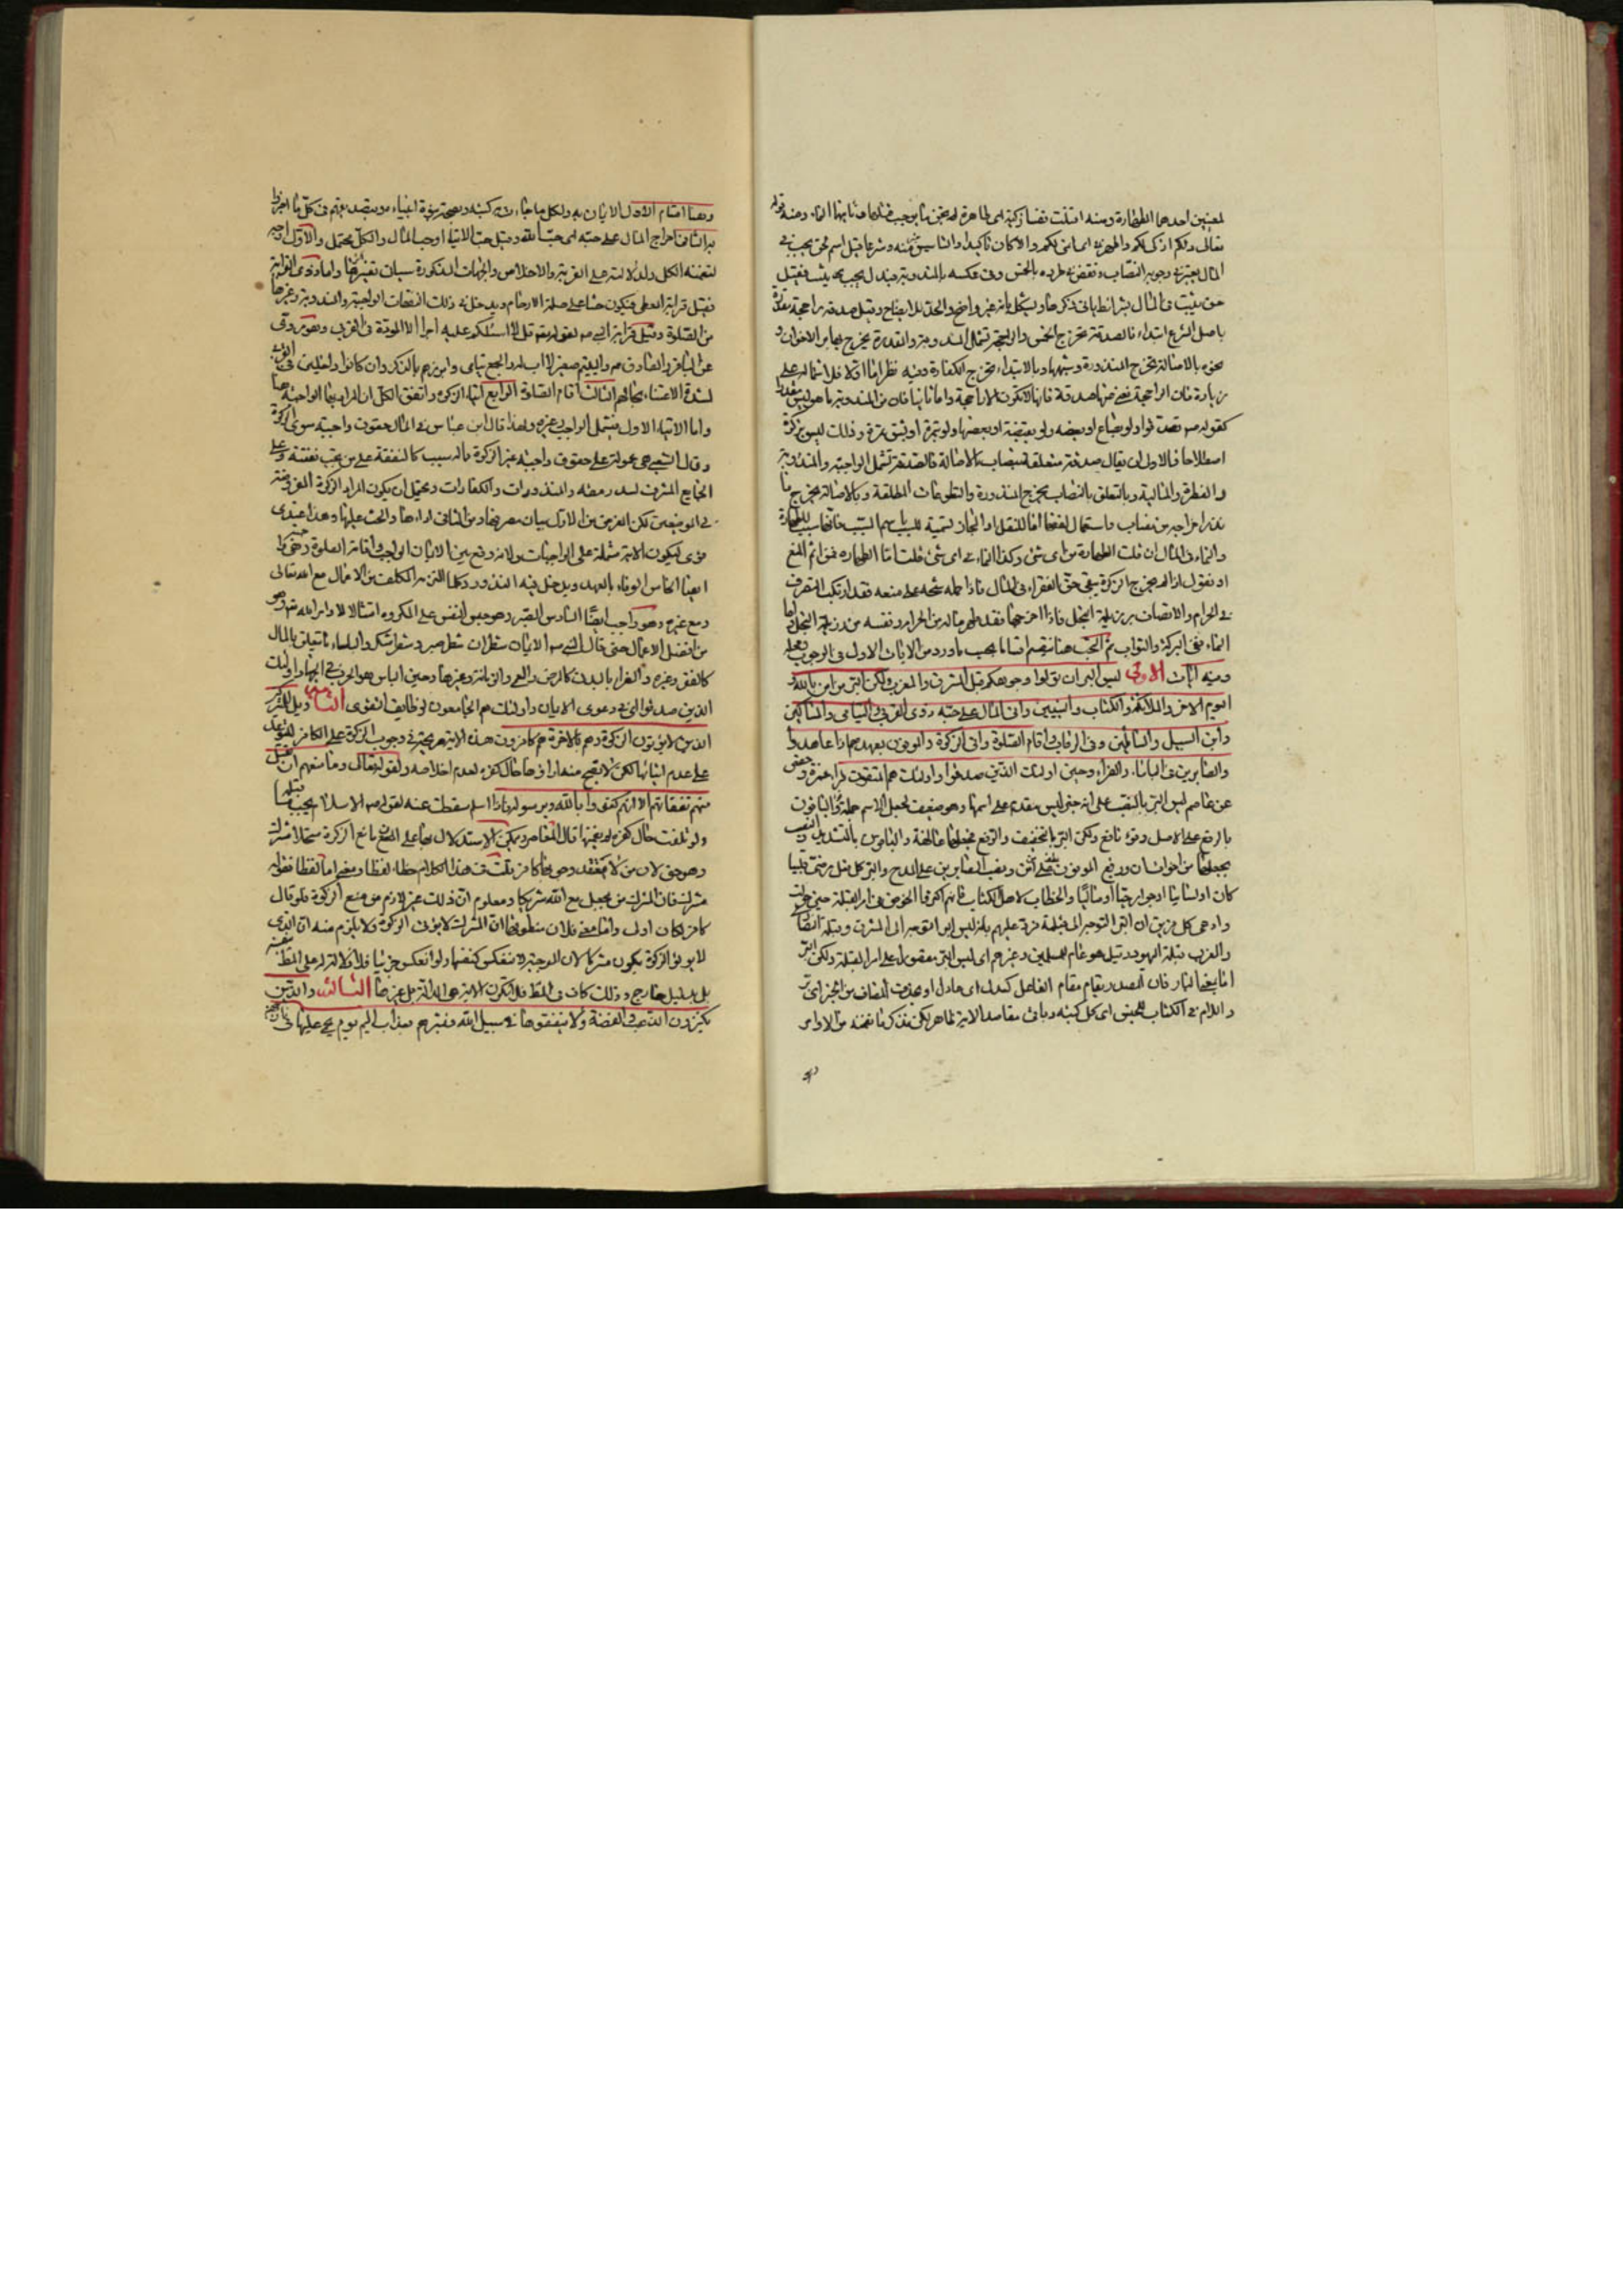 لمعنيين احدهما الطهارة ومنه اقتلت نفسا زكية اى طاهرة لم تجن ما يوجب قتلها وثانيهما النماء ومنه قوله
تعالى ذلكم ازكى لكم واطهر اى انمى لكم والا كان تاكيدا والتاسيس منه وشرعا قيل اسم لحق يجب فى
المال يعتبر فى وجوبه النصاب ونقض فى طرده بالخمس وفى عكسه بالمندوبة فبدل يجب يثبت فقيل
حق يثبت فى المال بشرائط ياتى ذكرها
باصل الشرع ابتداء فالصدقة تخرج الخمس والراجحة تشمل المندوبة والمقدرة تخرج
بالاصالة تخرج المنذورة وشبهها وبالابتداء تخرج الكفارة وفيه نظر اما اولا فلاشتماله على
زيادة فان الراجحة مغن عنها صدقة فانها لا تكون الا راجحة واما ثانيا فان من المندوبة ما هو ليس مقدرا
كقوله تصدقوا ولو بصاع او بعضه ولو بقبضة او بعضها ولو بتمرة او بشق تمرة وذلك ليس بزكوة
اصطلاحا فالاولى ان يقال صدقة متعلقة بنصاب بالاصالة فالصدقة تشمل الواجبة والمندوبة
والفطرة والمالية وبالتعلق بالنصاب يخرج المنذورة والتطوعات المطلقة وبالاصالة يخرج ما
نذر اخراجه من نصاب واستعمال لفظها اما للنقل او المجاز تسمية للسبب باسم المسبب فانها سبب للطهارة
والنماء فى المال ان قلت الطهارة من اى شئ وكذا النماء فى اى شئ قلت اما الطهارة فمن اثم المنع
او نقول اذا لم يخرج الزكوة يبقى حق الفقراء فى المال فاذا حمله شحه على منعه فقد ارتكب التصرف
فى الحرام والاتصاف برذيلة البخل فاذا اخرجها فقد طهر ماله من الحرام ونفسه من رذيلة البخل واما
النماء ففى البركة والثواب ثم البحث هنا ينقسم اقساما بحسب ما ورد من الايات الاول فى الوجوب ومحله
وفيه آيات الاولى ليس البر ان تولوا وجوهكم قبل المشرق والمغرب ولكن البر من امن بالله و
اليوم الاخر والملائكة والكتاب والنبيين واتى المال على حبه ذوى القربى واليتامى والمساكين
وابن السبيل والسائلين وفى الرقاب واقام الصلوة واتى الزكوة والموفون بعهدهم اذا عاهدوا
والصابرين فى الباساء والضراء وحين اولئك الذين صدقوا واولئك هم المتقون قرا حمزة وحفص
عن عاصم ليس البر بالنصب على انه خبر ليس مقدم على اسمها وهو ضعيف لجعل الاسم جملة والباقون
بالرفع على الاصل وقرء نافع ولكن البر بالتخفيف والرفع والباقون بالتشديد والنصب
بجعلها من اخوات ان ورفع الموفون عطف على من ونصب الصابرين على المدح والبر كل فعل مرضى قلبيا
كان او لسانيا او جوارحيا او ماليا والخطاب لاهل الكتاب فانهم اكثروا الخوض فى امر القبلة حين حولت
وادعى كل فريق ان البر التوجه الى قبلته فرد عليهم بانه ليس البر التوجه الى المشرق وقبلة النصارى
والمغرب قبلة اليهود وقيل هو عام للمسلمين وغيرهم اى ليس البر مقصورا على امر القبلة ولكن البر
مقام الفاعل كعدل اى عادل او بحذف المضاف من الخبر اى بر
واللام فى الكتاب للجنس اى كل كتبه وباقى مقاصد الاية ظاهر لكن نذكر ما تضمنه من الاوامر
وهنا اقسام الاول الايمان به وبكل ما جاء به كتبه
اخراج المال على حبه اى حب الله وقيل حب الايتاء او حب المال والكل محتمل والاول اوجه
لتضمنه الكل ولدلالته على القربة والاخلاص والجهات المذكورة سيأتى تفسيرها واما ذوى القربى
فقيل قرابة المعطى فيكون حثا على صلة الارحام ويدخل فيه ذلك النفقات الواجبة والمندوبة وغيرها
من الصلاة وقيل قرابة النبى لقوله تعالى قل لا اسئلكم عليه اجرا الا المودة فى القربى وهو مروى
عن الباقر والصادق واليتيم صغير لا اب له والجمع يتامى وافردهم بالذكر وان كانوا داخلين فى القربى
لشدة الاعتناء بحالهم الثالث اقام الصلوة الرابع ايتاء الزكوة واتفق الكل ان المراد بها الواجبة هنا
واما الايتاء الاول فيشمل الواجب وغيره ولهذا قال ابن عباس فى المال حقوق واجبة سوى الزكوة
وقال الشعبى هى محمولة على حقوق واجبة غير الزكوة مما له سبب كالنفقة على من تجب نفقته وعلى
الجايع المشرف لسد رمقه والمنذورات والكفارات ويحتمل ان يكون المراد الزكوة المفروضة
فى الموضعين لكن الغرض من الاول بيان مصرفها ومن الثانى اداءها والحث عليها وهذا عندى
قوى ليكون الاية مشتملة على الواجبات ولانه وقع بين الايمان الواجب واقامة الصلوة
ايضا الخامس الوفاء بالعهد ويدخل فيه النذور وكلما التزم المكلف من الاعمال مع الله تعالى
ومع غيره وهو واجب ايضا السادس الصبر وهو حبس النفس على المكروه امتثالا لاوامر الله تعالى وهو
من افضل الاعمال حتى قال النبى الايمان شطران شطر صبر وشطر شكر والبأساء ما يتعلق بالمال
كالفقر وغيره والضراء بالبدن كالمرض والعمى والزمانة وغيرها وحين البأس هو الحرب فى الجهاد اولئك
الذين صدقوا اى فى دعوى الايمان واولئك هم الجامعون لوظايف التقوى الثانية وويل للمشركين
الذين لا يؤتون الزكوة وهم بالاخرة هم كافرون هذه الاية صريحة فى وجوب الزكوة على الكافر للتوعد
على عدم ايتائها لكن لا يصح منه اداؤها حال كفره لعدم اخلاصه ولقوله تعالى وما منعهم ان تقبل
منهم نفقاتهم الا انهم كفروا بالله وبرسوله فاذا اسلم سقطت عنه لقوله الاسلام يجب ما قبله
ولو تلفت حال كفره لم يضمنها قال المعاصر ويمكن الاستدلال بها على ان مانع الزكوة مستحلا مشرك
وهو حق لان من لا يعتقد وجوبها كافر قلت فى هذا الكلام خطا لفظا ومعنى اما لفظا فقوله
مشرك فان المشرك من يجعل مع الله شريكا ومعلوم ان ذلك غير لازم من منع الزكوة فلو قال
كافر لكان اولى واما معنى فلان منطوقها ان المشرك لا يؤتى الزكوة ولا يلزم منه ان الذى
لا يؤتى الزكوة يكون مشركا لان الموجبة لا تنعكس كنفسها ولو انعكس جزئيا فلا دلالة له على المطلوب بنفسه
بل بدليل خارج وذلك كاف فى المطلوب فلا تكون الاية هى الدالة بل غيرها الثالثة والذين
يكنزون الذهب والفضة ولا ينفقونها فى سبيل الله فبشرهم بعذاب اليم يوم يحمى عليها فى نار جهنم